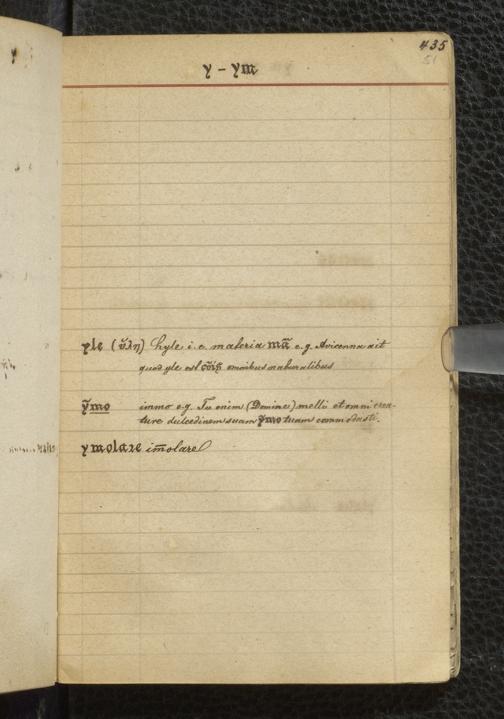 435
51
y – ym
yle (ὕλη) hyle i. e. materia m̄ā e. g. Avicenna ait
quod yle est cōīs omnibus naturalibus
ȳmo immo e. g. Tu enim (Domine) melli et omni crea-
ture dulcedinem suam ȳmo tuam commodasti.
ymolare im̄olare